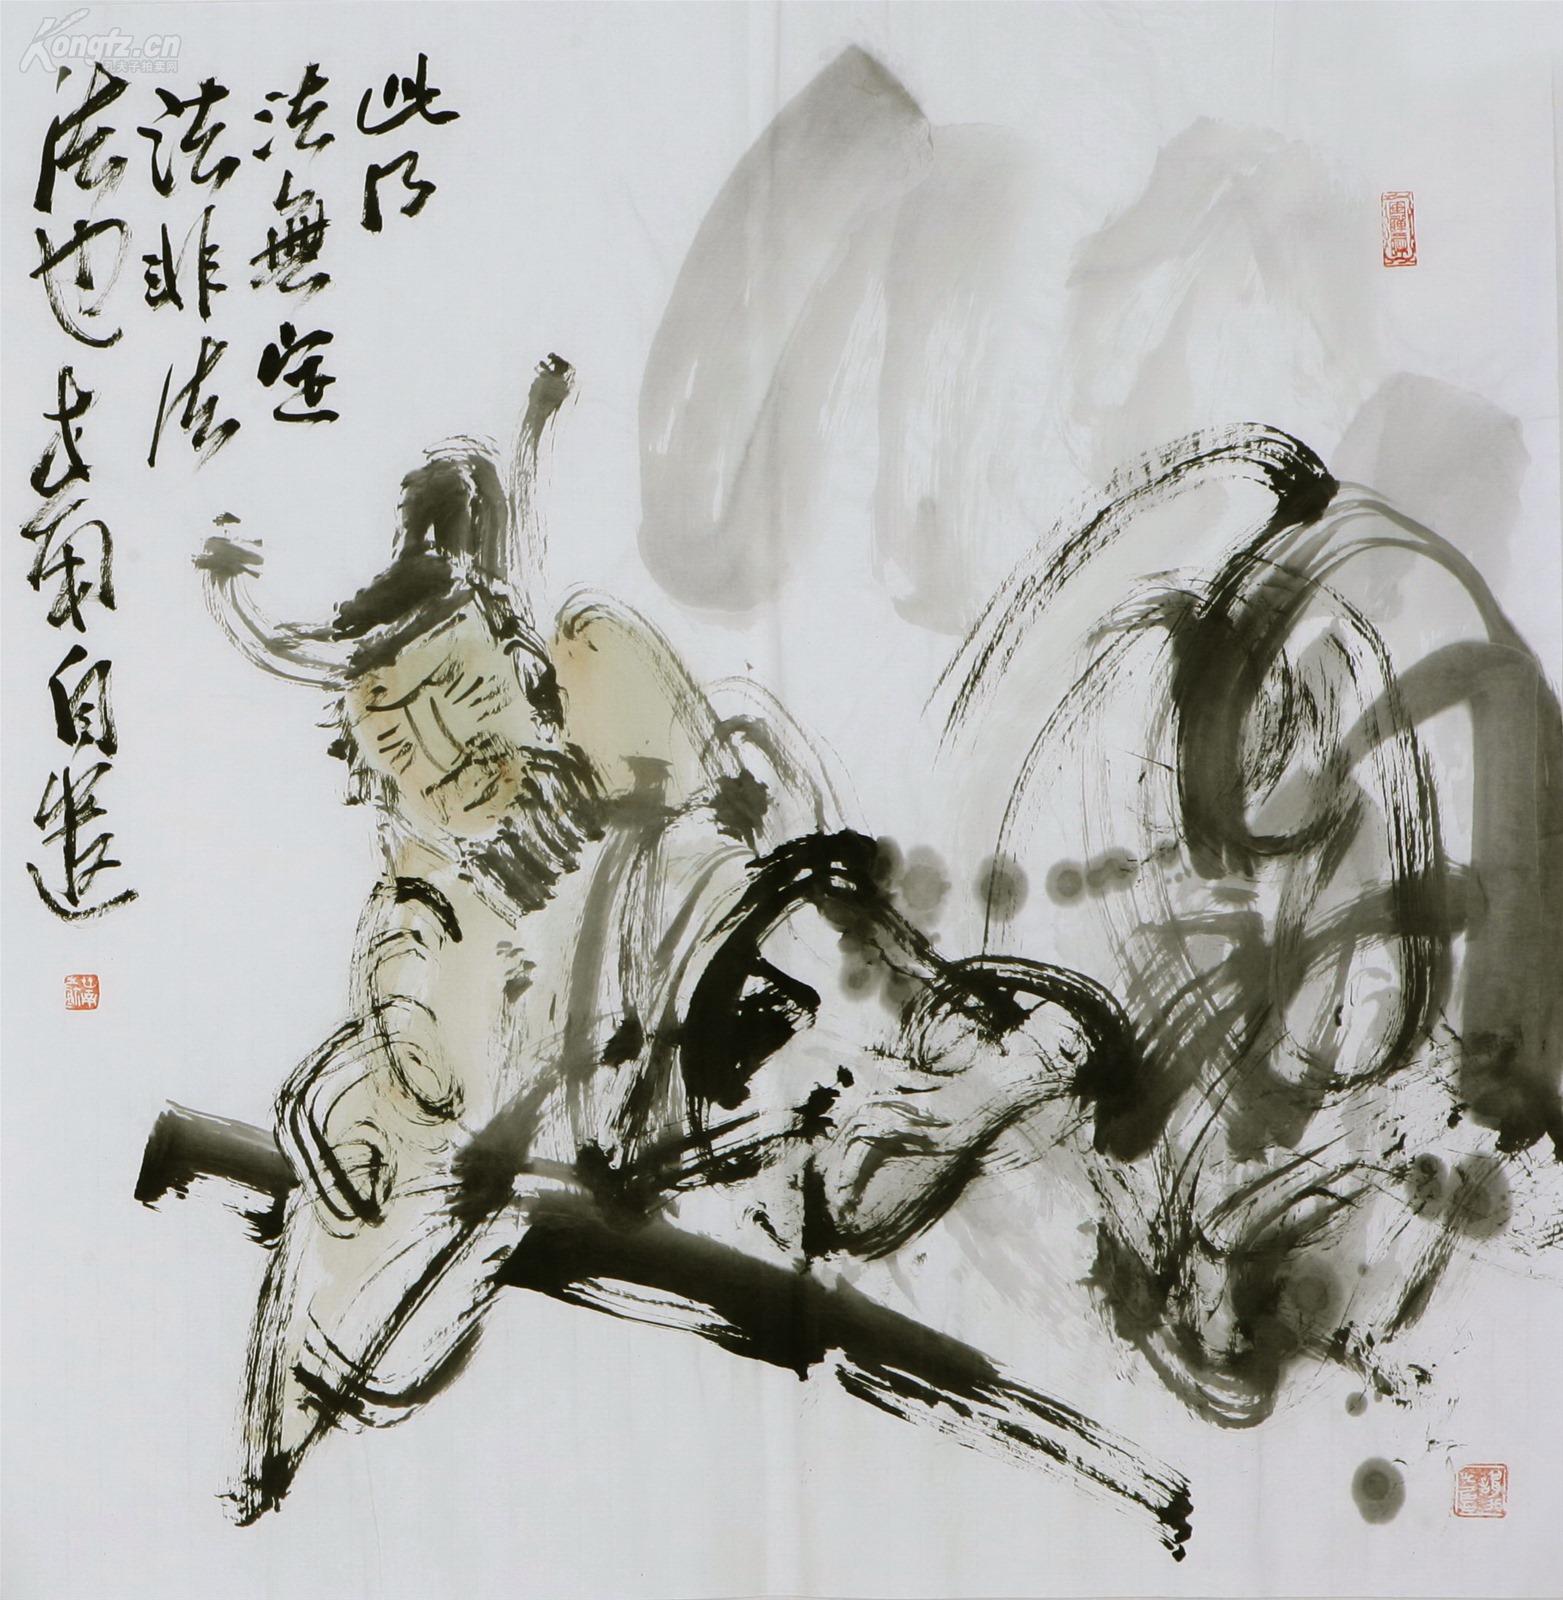 此乃
法無定
法非法
法也 廿南自遣
Kongfz.cn
孔夫子拍卖网